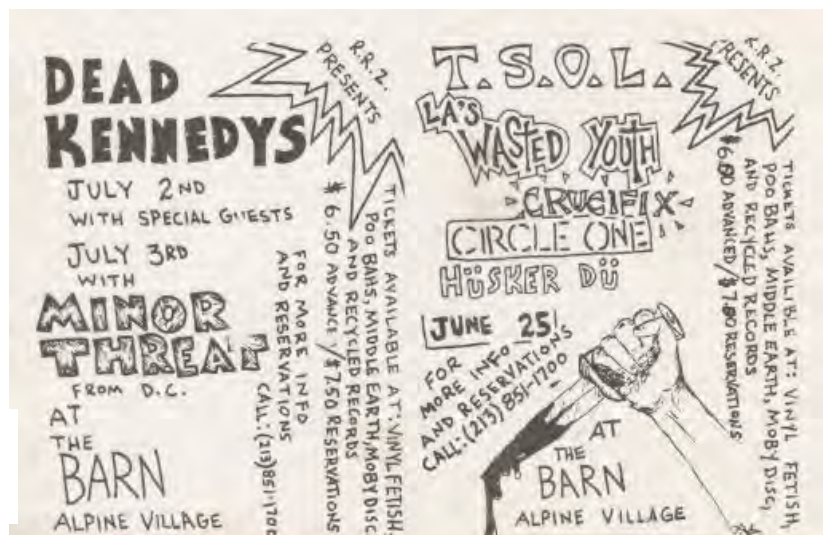 DEAD
KENNEDYS
JULY 2ND
WITH SPECIAL GUESTS
JULY 3RD
WITH
MINOR
THREAT
FROM D.C.
AT
THE
BARN
ALPINE VILLAGE
R.R.Z.
PRESENTS
TICKETS AVAILABLE AT: VINYL FETISH,
POO BAHS, MIDDLE EARTH, MOBY DISC
AND RECYCLED RECORDS
$6.50 ADVANCE/$7.50 RESERVATIONS
FOR MORE INFO
AND RESERVATIONS
CALL: (213)851-1700
T.S.O.L.
LA'S
WASTED YOUTH
CRUCIFIX
CIRCLE ONE
HÜSKER DÜ
JUNE 25!
FOR
MORE INFO
AND RESERVATIONS
CALL: (213) 851-1700
AT
THE
BARN
ALPINE VILLAGE
R.R.Z.
PRESENTS
TICKETS AVAILIBLE AT: VINYL FETISH,
POO BAHS, MIDDLE EARTH, MOBY DISC,
AND RECYCLED RECORDS
ADVANCED/$7.50 RESERVATIONS